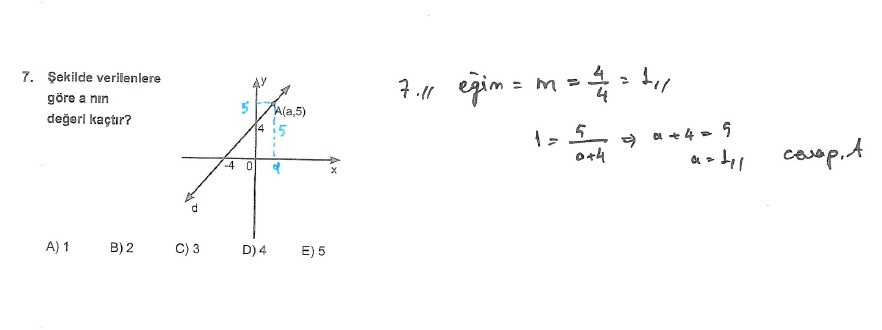 7. Şekilde verilenlere
göre a nın
değeri kaçtır?
y
5
A(a,5)
4
5
-4 0 a
x
d
A) 1 B) 2 C) 3 D) 4 E) 5
7.// eğim = m = 4/4 = 1//
1 = 5/(a+4) ⇒ a + 4 = 5
a = 1// cevap. A